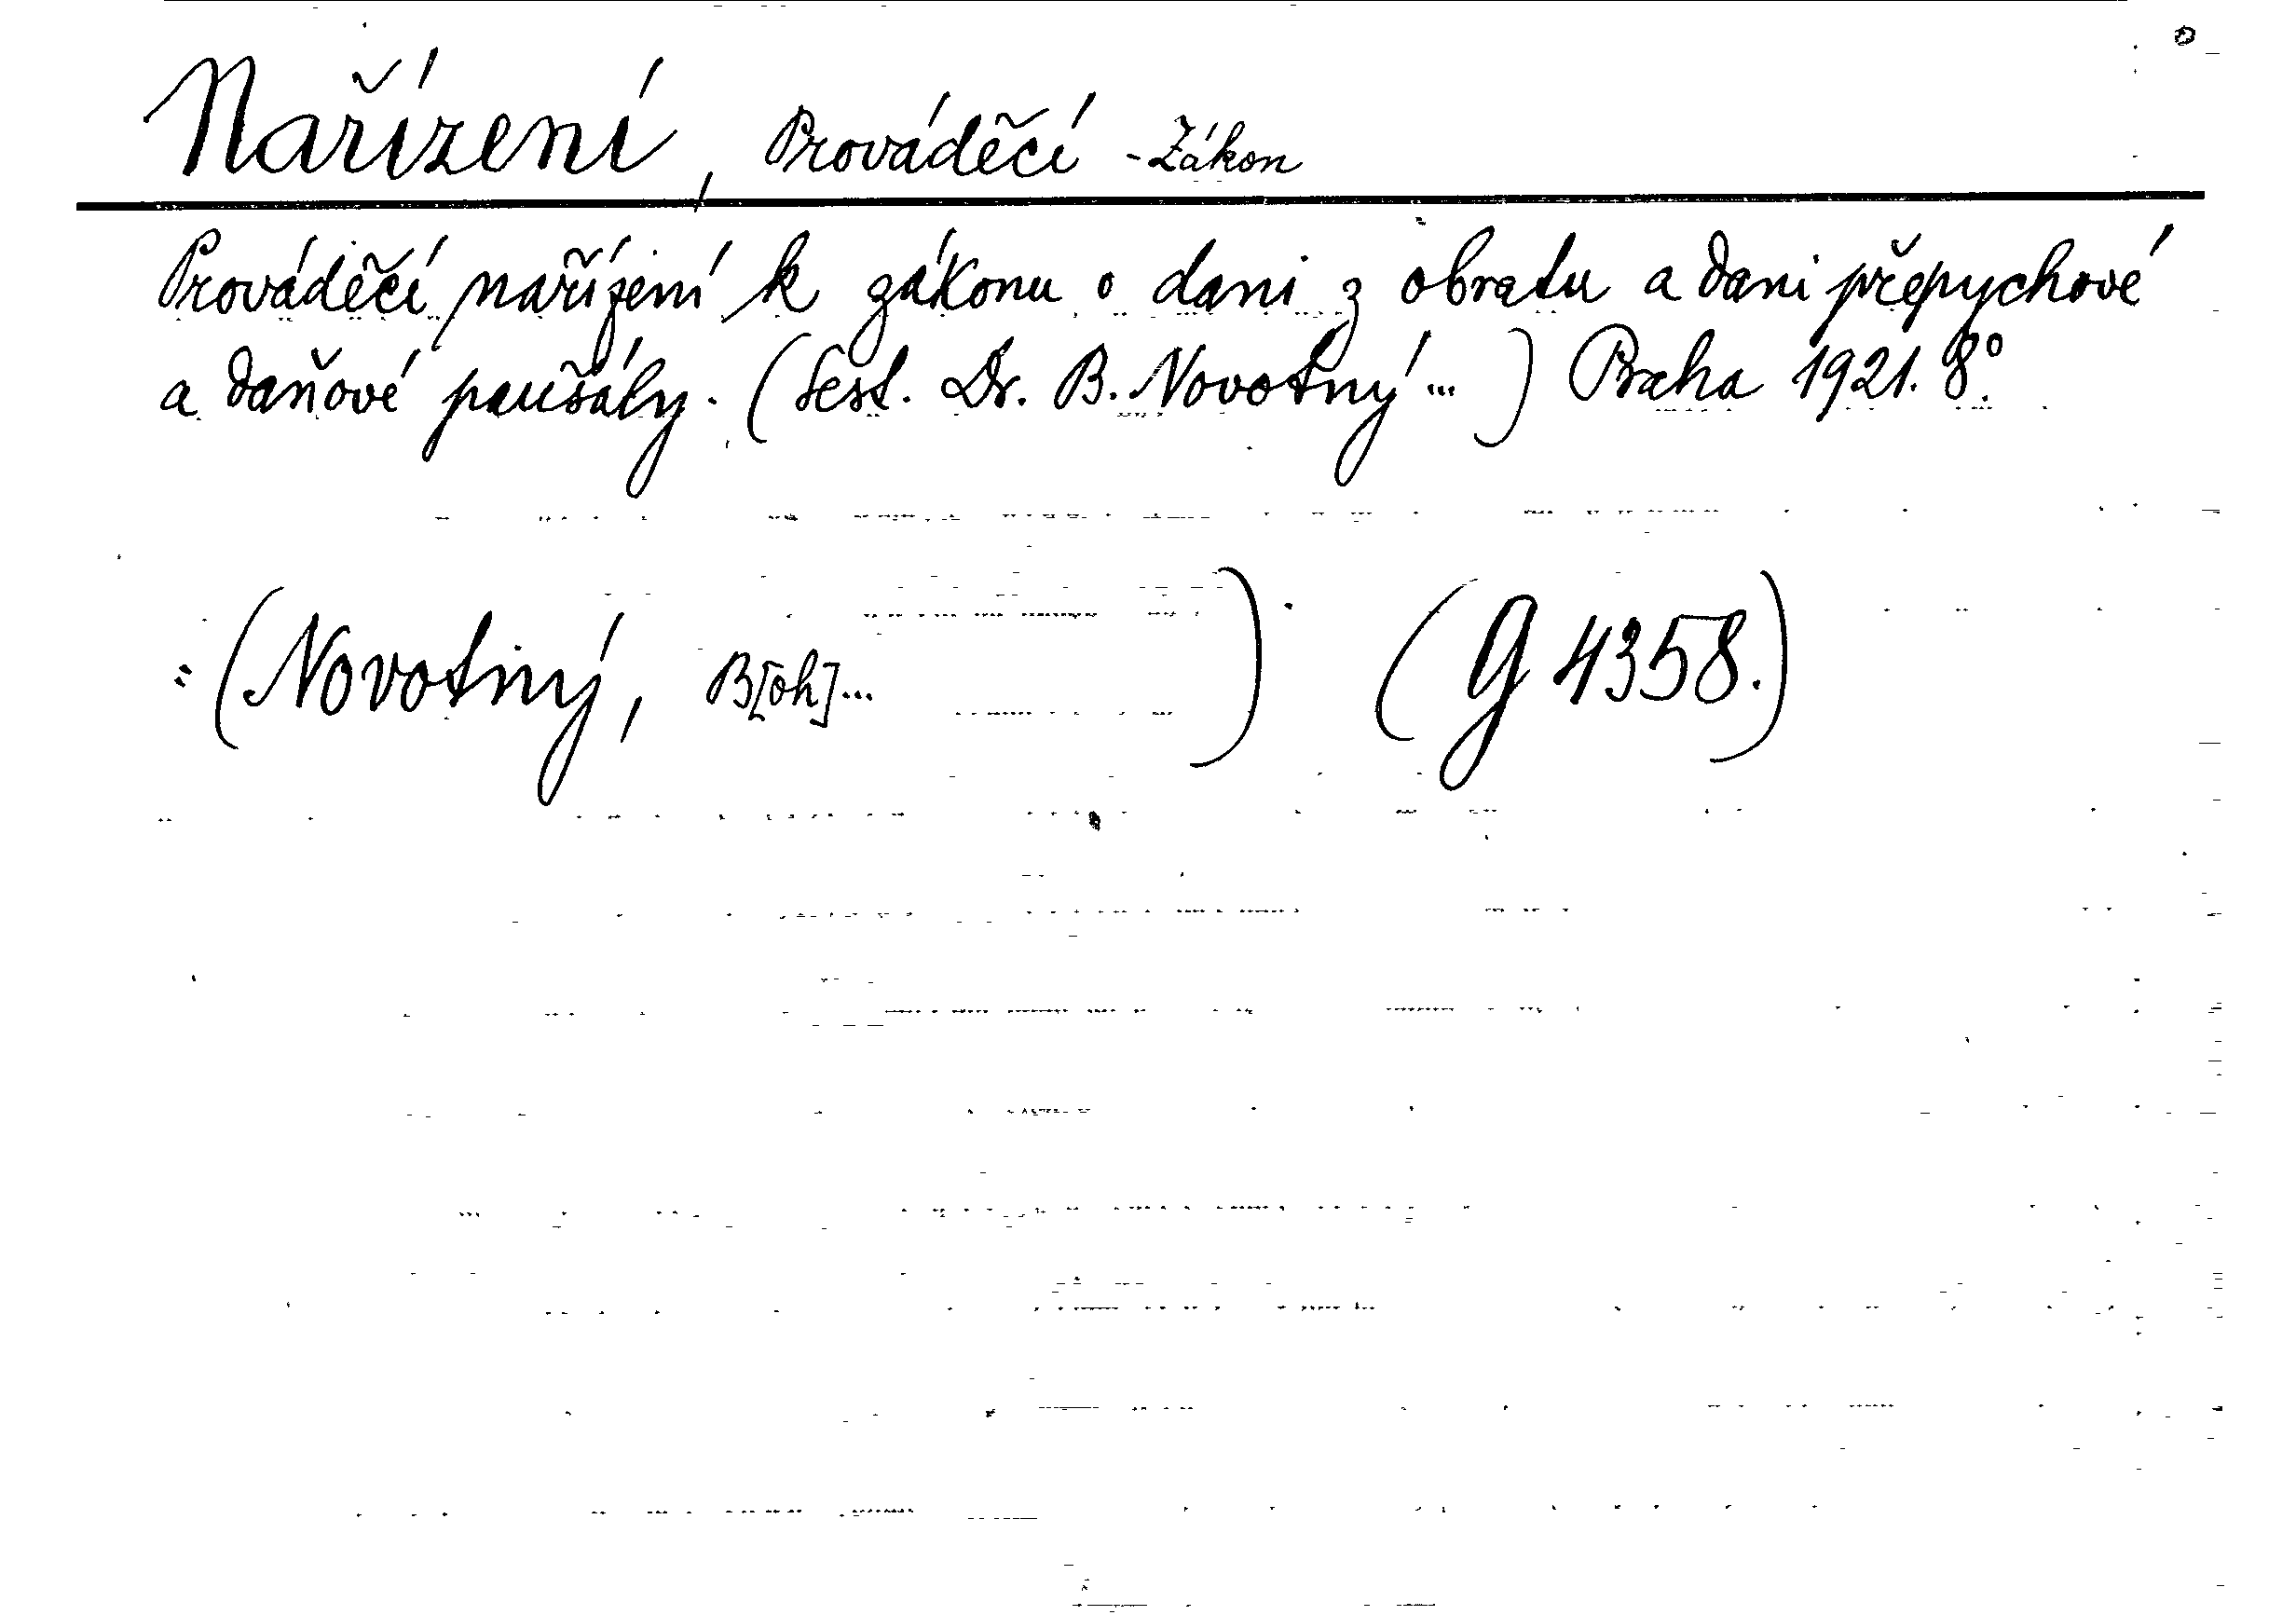 Nařízení, Prováděcí - Zákon
Prováděcí nařízení k zákonu o dani z obratu a dani přepychové
a daňové paušály. (Sest. Dr. B. Novotný ...) Praha 1921. 8°.
= (Novotný, B[oh]... ) (G 4358.)